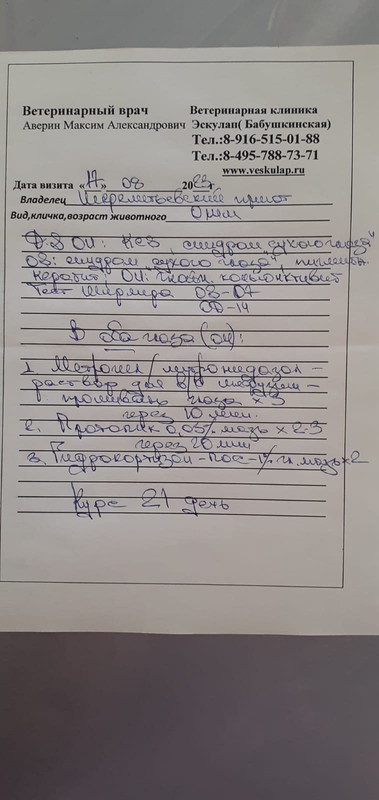 Ветеринарный врач
Аверин Максим Александрович
Ветеринарная клиника
Эскулап( Бабушкинская)
Тел.:8-916-515-01-88
Тел.:8-495-788-73-71
www.veskulap.ru
Дата визита «17» 08 2023г
Владелец Шереметьевский приют
Вид,кличка,возраст животного Оней
DS OU: KCS, синдром сухого глаза"
OS: синдром "сухого глаза", пигмент.
кератит, OU: хронич. конъюнктивит
Тест Ширмера OS-07
OD-14
В оба глаза (OU):
1. Метрогил/метронидазол -
раствор для в/в инфузий -
промывать глаза x 3
через 10 мин.
2. Протопик 0,03% мазь x 2-3
через 20 мин
3. Гидрокортизон-Пос-1% гл. мазь x 2
Курс 21 день